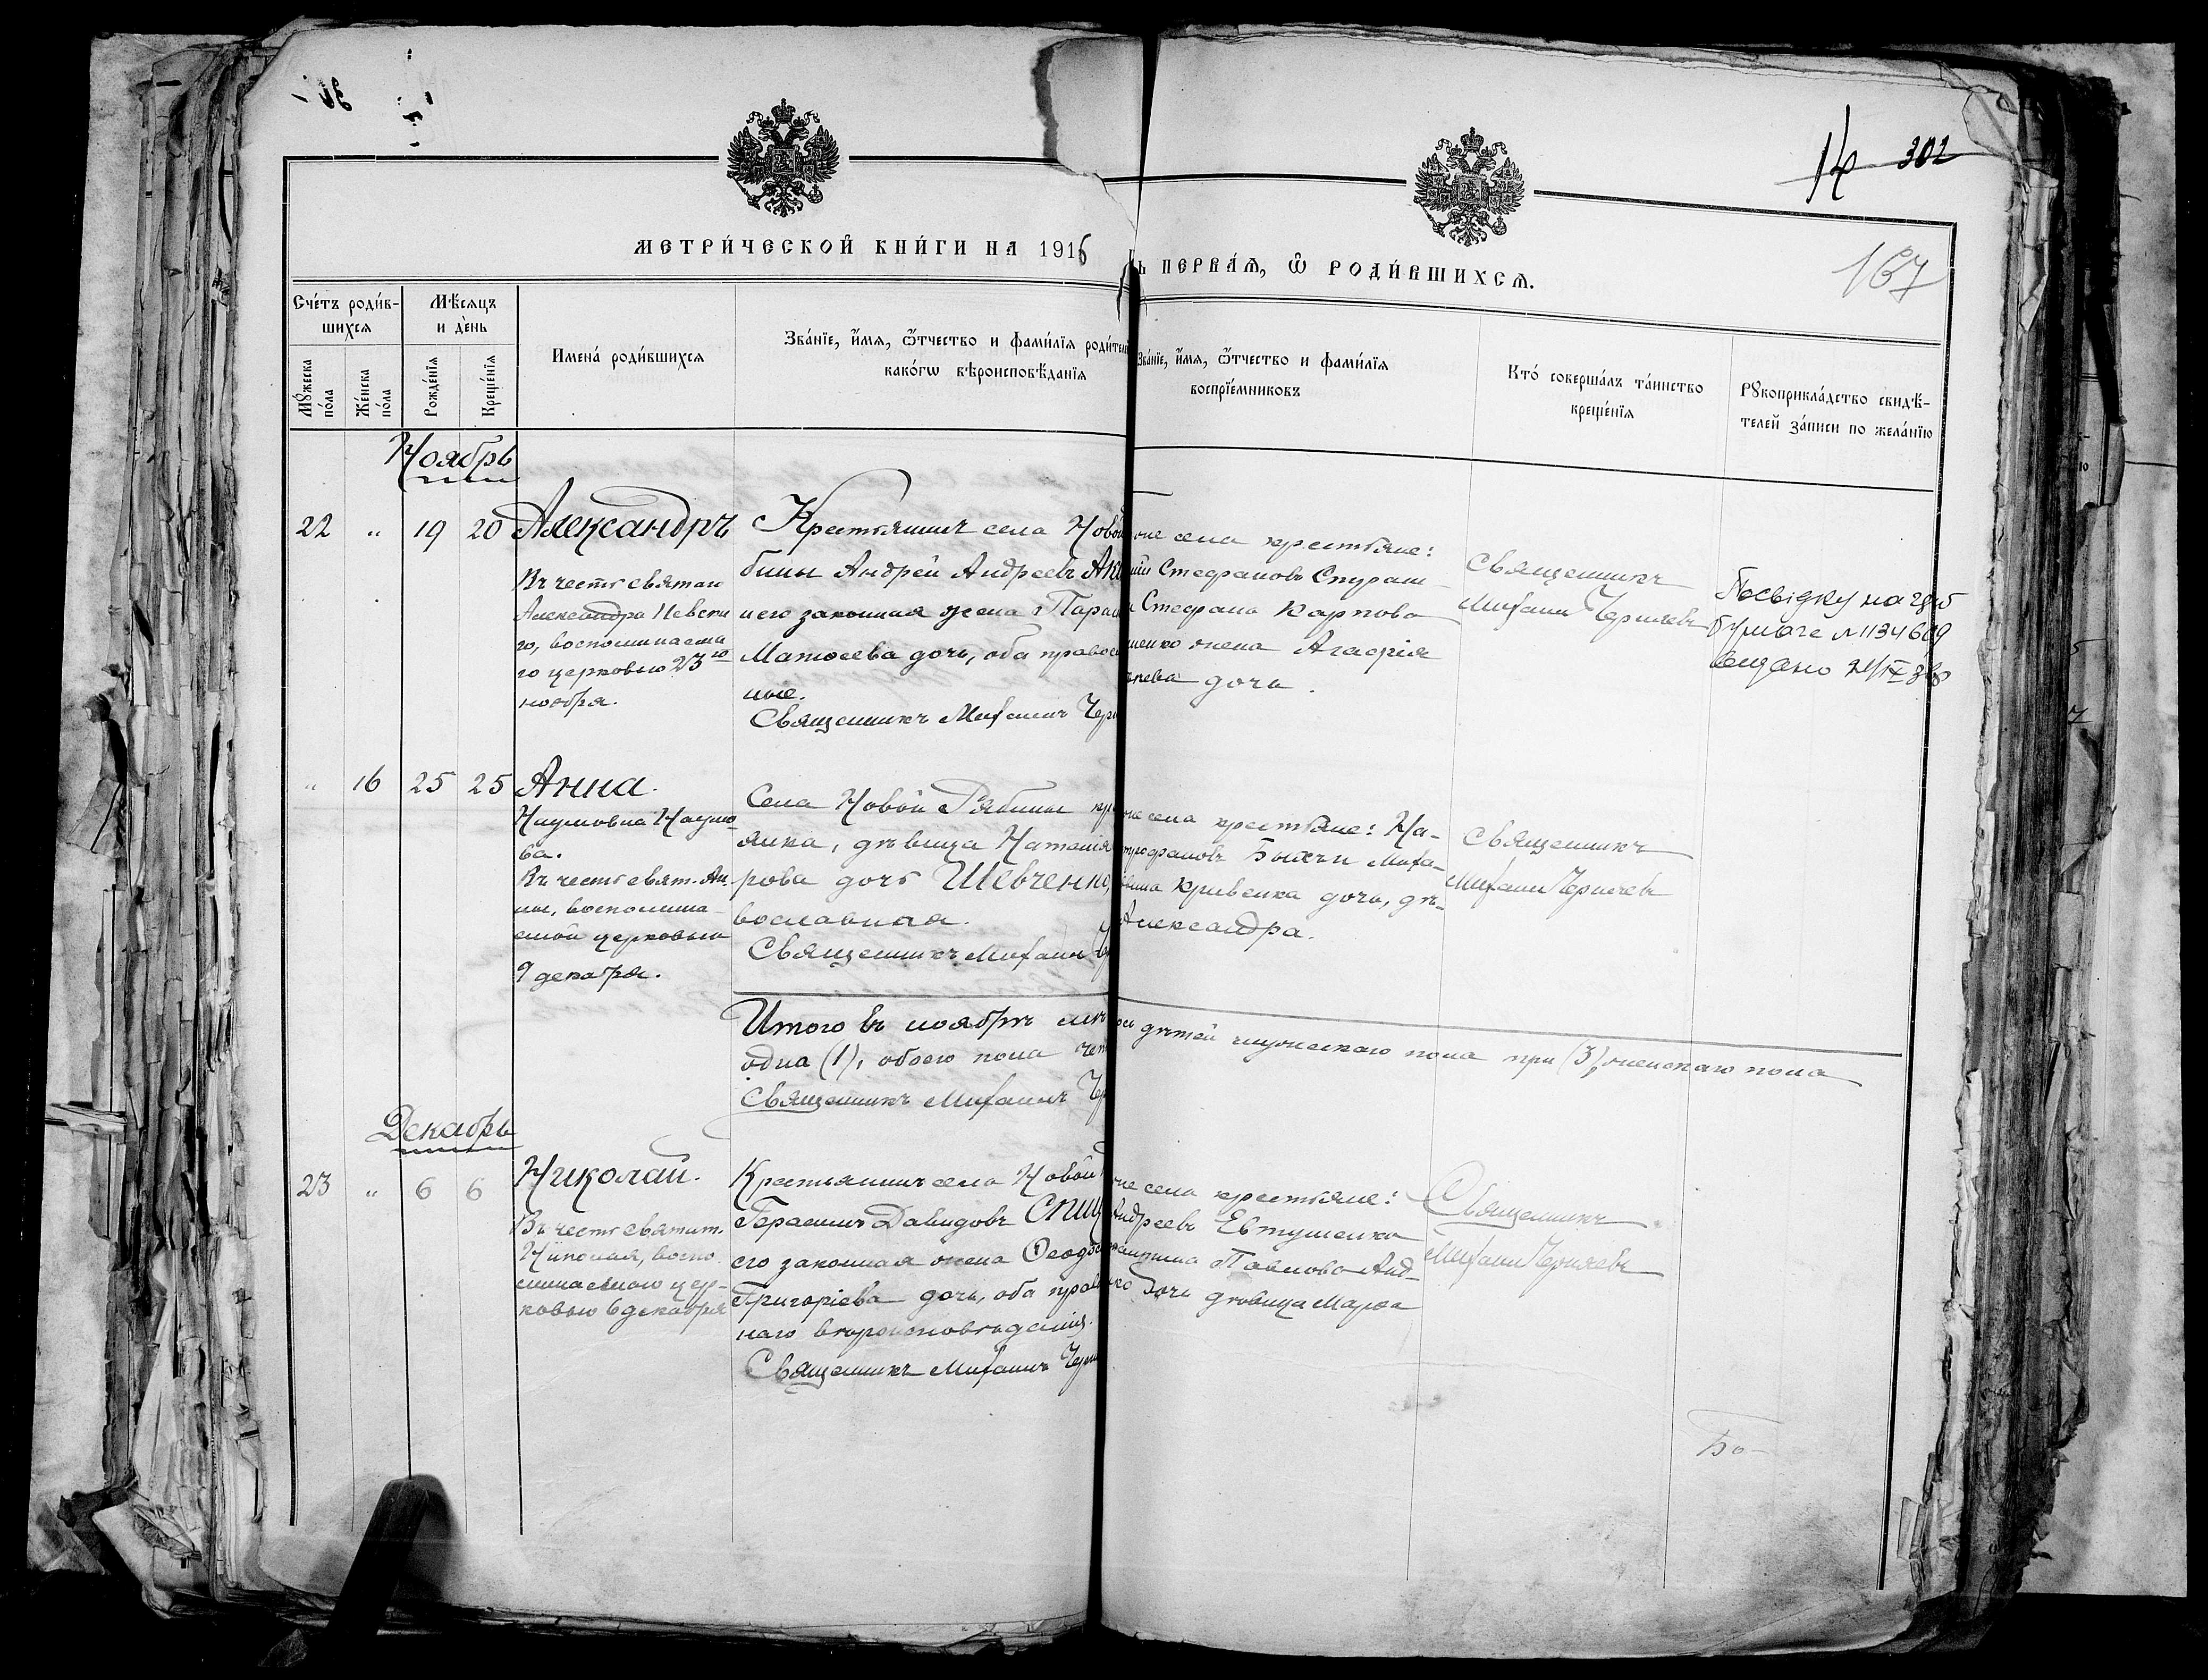 14 302
167
МЕТРИ́ЧЕСКОЙ КНИ́ГИ НА 1916
Ь ПЕРВА́Я, Ѽ РОДИ́ВШИХСЯ.
Сче́тъ роди́в-
шихся
Мѣ́сяцъ
и де́нь
Мꙋ́жеска
по́ла
Же́нска
по́ла
Рожде́нїя
Креще́нїя
Имена́ роди́вшихся
Зва́нїе, и́мя, ѻ́тчество и фами́лїя роди́тел
како́гѡ вѣроисповѣ́данїя
Зва́нїе, и́мя, ѻ́тчество и фами́лїя
воспрїе́мниковъ
Кто́ соверша́лъ та́инство
креще́нїя
Рꙋкоприкла́дство свидѣ́-
телей за́писи по жела́нїю
Ноябрь
22 " 19 20 Александръ
Въ честь святаго
Александра Невска
го, воспоминаема
го церковью 23го
ноября.
Крестьянинъ села Новой
бины Андрей Андреевъ Ак
и его законная жена Параск
Матѳеева дочь, оба правос
ные.
Священникъ Михаилъ Чер
оне села крестьяне:
Стефановъ
Стефана Карпова
шенко жена Агафія
дочь.
Священникъ
Михаилъ Черняевъ
Посвідку на
бумаге № 1134609
видано
" 16 25 25 Анна.
Наумовна Наумо-
ва.
Въ честь свят. Ан-
ны, воспомина-
емой церковью
9 декабря.
Села Новой Рябины кр
янка, дѣвица Наталія
рова дочь Шевченко,
вославная.
Священникъ Михаилъ Ч
оне села крестьяне: На-
трофановъ Миха-
Кривенка дочь, дѣ-
Александра.
Священникъ
Михаилъ Черняевъ
Итого въ ноябрѣ мѣ
ось дѣтей мужескаго пола три (3), женскаго пола
одна (1), обоего пола чет
Священникъ Михаилъ Че
Декабрь
23 " 6 6 Николай.
Въ честь святит.
Николая, воспо
минаемаго цер-
ковью 6 декабря
Крестьянинъ села Новой
Герасимъ Давидовъ Спи
его законная жена Ѳеодо
Григоріева дочь, оба прав
наго вѣроисповѣданія.
Священникъ Михаилъ Черн
оне села крестьяне:
Андреевъ Евтушенко
Павлова Анд-
дочь дѣвица Марѳа
Священникъ
Михаилъ Черняевъ